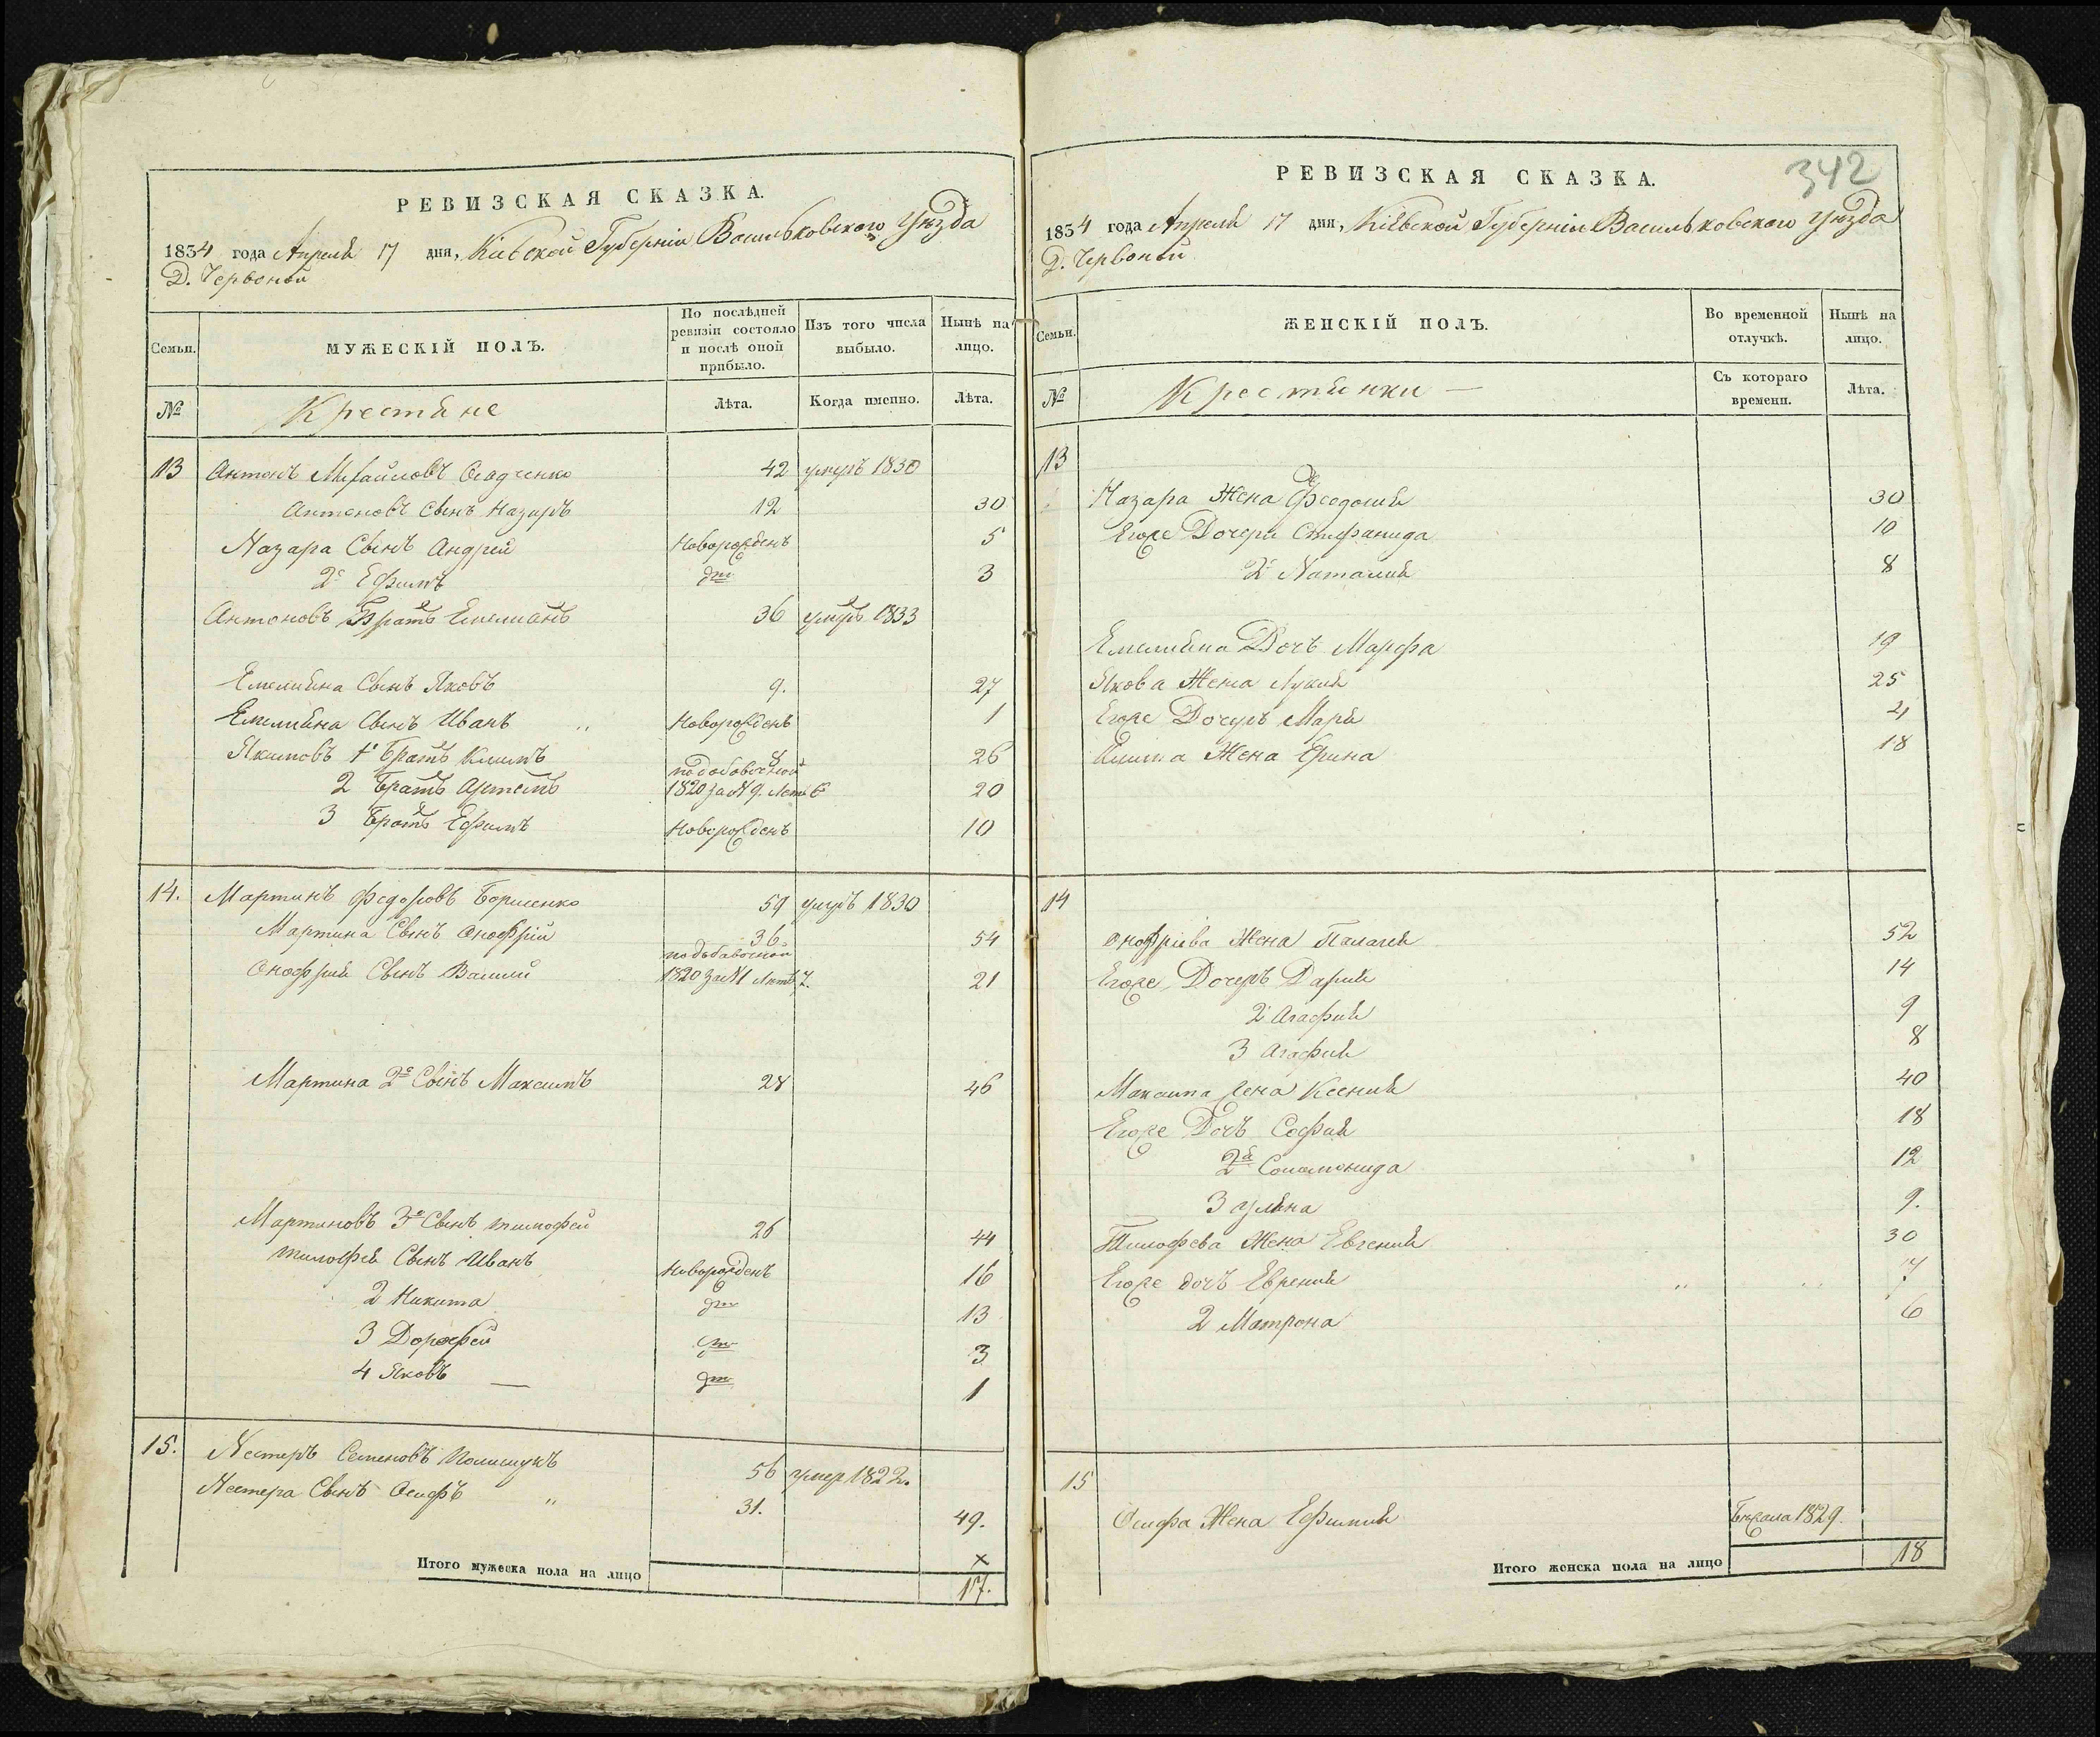 РЕВИЗСКАЯ СКАЗКА.
1834 года Апреля 17 дня, Кіевской Губерніи Васильковского Уѣзда
Д. Червоной
Семьи.
МУЖЕСКІЙ ПОЛЪ.
По послѣдней ревизіи состояло и послѣ оной прибыло.
Изъ того числа выбыло.
Нынѣ на лицо.
№
Крестяне
Лѣта.
Когда именно.
Лѣта.
13 Антонъ Михайловъ Осадченко 42 умеръ 1830
Антоновъ Сынъ Назаръ 12 30
Назара Сынъ Андрей Новорожденъ 5
2й Ефимъ дто 3
Антоновъ Братъ Емельянъ 36 умеръ 1833
Емеляна Сынъ Яковъ 9. 27
Емеляна Сынъ Иванъ „ Новорожденъ 1
Якимовъ 1й Братъ Климъ подобавочной 26
2 Братъ Артемъ 1820 за N 9. Летъ 6 20
3 Братъ Ефимъ Новорожденъ 10
14. Мартинъ Федоровъ Борисенко 59 умеръ 1830
Мартина Сынъ Онофрій 36 54
подобавочной
Онофрия Сынъ Василий 1820 за N1 летъ 7. 21
Мартина 2й Сынъ Максимъ 28 46
Мартиновъ 3й Сынъ тимофей 26 44
тимофея Сынъ Иванъ Новорожденъ 16
2 Никита дто 13
3 Дорофей дто 3
4 Яковъ дто 1
15. Нестеръ Семеновъ Полищукъ 56 умер 1822.
Нестера Сынъ Осифъ „ 31. 49.
Итого мужеска пола на лицо 17.
342
РЕВИЗСКАЯ СКАЗКА.
1834 года Апреля 17 дня, Кіевской Губерніи Васильковского Уѣзда
Д. Червоной
Семьи.
ЖЕНСКІЙ ПОЛЪ.
Во временной отлучкѣ.
Нынѣ на лицо.
№
Крестянки
Съ котораго времени.
Лѣта.
13
Назара Жена Феодосия 30
Егоже Дочери Стефанида 10
2я Наталия 8
Емеляна Дочъ Марфа 19
Якова Жена Лукия 25
Егоже Дочеръ Маря 4
Клима Жена Ерина 18
14
Онофріева Жена Палагея 52
Егоже Дочеръ Дария 14
2 Агафия 9
3 Агафия 8
Максима Жена Ксения 40
Егоже Дочъ София 18
2я Соломонида 12
3 Уляна 9.
Тимофева Жена Евгения 30
Егоже дочъ Еврения „ „ 7
2 Матрона 6
15
Осифа Жена Ефимия Бежала 1829.
Итого женска пола на лицо 18